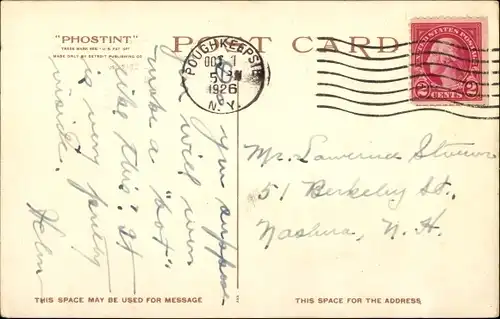 "PHOSTINT"
TRADE MARK REG. U.S. PAT. OFF.
MADE ONLY BY DETROIT PUBLISHING CO.
POST CARD
POUGHKEEPSIE
OCT 1
5 PM
1926
N.Y.
UNITED STATES POSTAGE
2 CENTS 2
Do you suppose
you will ever
make a "dot"
like this? It
is very pretty
inside.
Helen
Mr. Lawrence
51 Berkeley St.,
Nashua, N. H.
THIS SPACE MAY BE USED FOR MESSAGE
THIS SPACE FOR THE ADDRESS